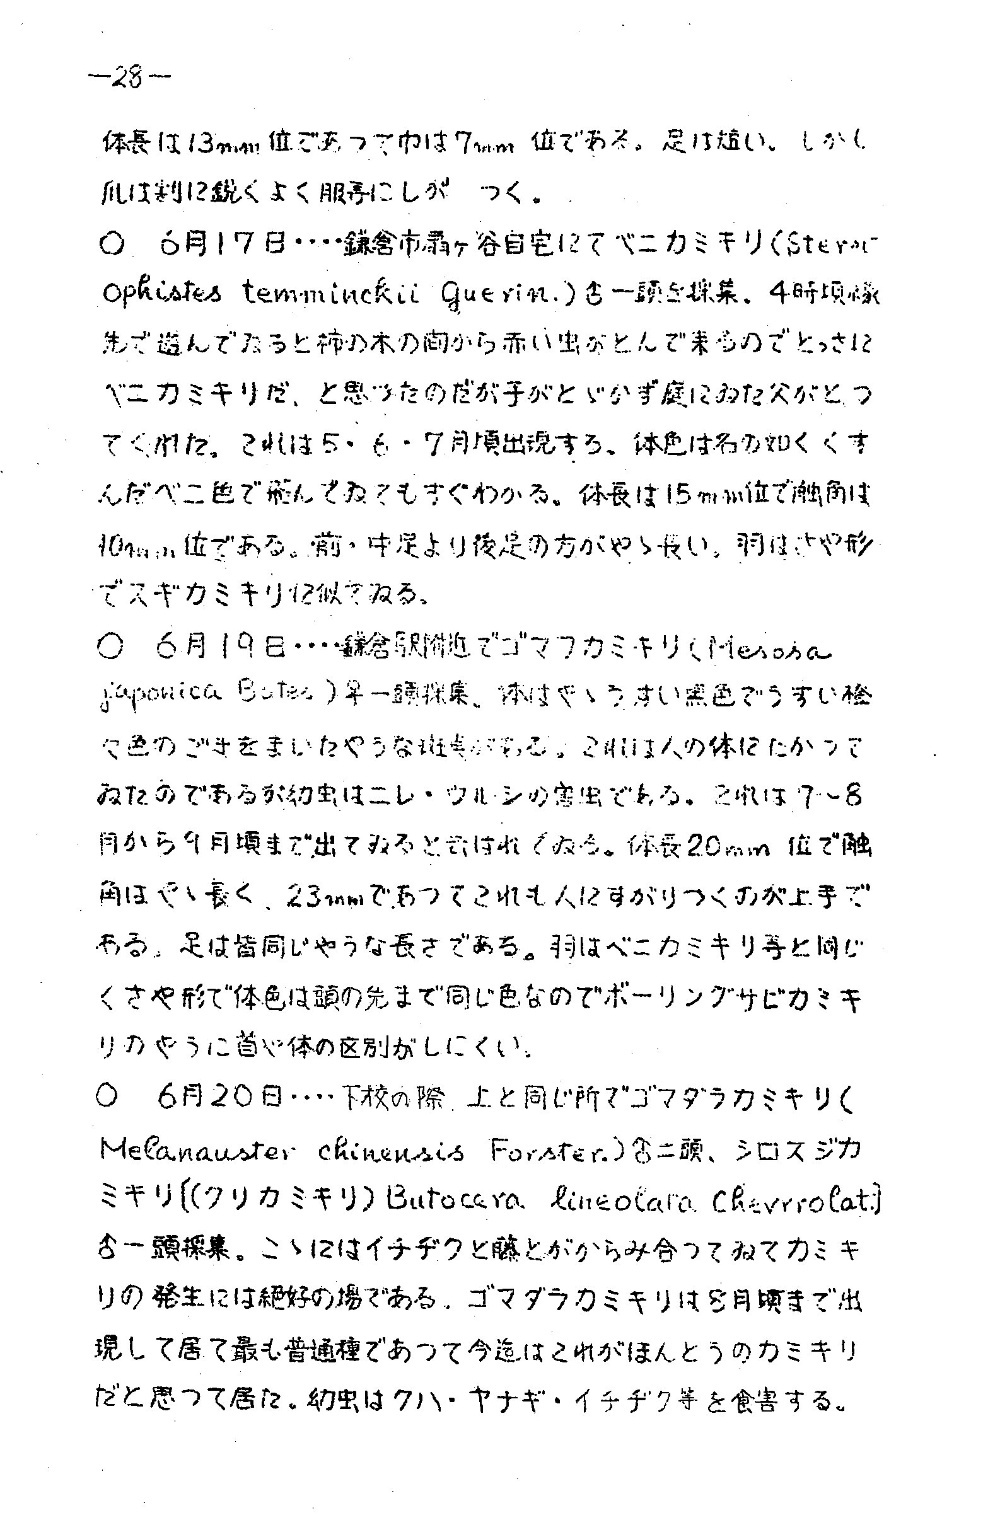 —28—
体長は13mm位であつて巾は7mm 位である。足は短い。しかし
爪は割に鋭くよく服等にしが つく。
○ 6月17日‥‥鎌倉市扇ヶ谷自宅にてベニカミキリ(Stern-
ophistes temminckii Guerin.)♂一頭を採集。4時頃縁
先で遊んでゐると柿の木の間から赤い虫がとんで来るのでとっさに
ベニカミキリだ、と思つたのだが手がとゞかず庭にゐた父がとつ
てくれた。これは5・6・7月頃出現する。体色は名の如くくす
んだベニ色で飛んでゐてもすぐわかる。体長は15mm位で触角は
10mm位である。前・中足より後足の方がやゝ長い。羽はさや形
でスギカミキリに似てゐる。
○ 6月19日‥‥鎌倉駅附近でゴマフカミキリ(Mesosa
japonica Bates)♀一頭採集。体はやゝうすい黒色でうすい橙
色のごまをまいたやうな斑点がある。これは人の体にたかつて
ゐたのであるが幼虫はニレ・ウルシの害虫である。これは7~8
月から9月頃まで出てゐると云はれてゐる。体長20mm 位で触
角はやゝ長く、23mmであつてこれも人にすがりつくのが上手で
ある。足は皆同じやうな長さである。羽はベニカミキリ等と同じ
くさや形で体色は頭の先まで同じ色なのでボーリングサビカミキ
リのやうに首や体の区別がしにくい。
○ 6月20日‥‥下校の際、上と同じ所でゴマダラカミキリ(
Melanauster chinensis Forster.)♂二頭、シロスジカ
ミキリ[(クリカミキリ) Butocera lineolara Chevrrolat.]
♂一頭採集。こゝにはイチヂクと藤とがからみ合つてゐてカミキ
リの発生には絶好の場である。ゴマダラカミキリは8月頃まで出
現して居て最も普通種であつて今迄はこれがほんとうのカミキリ
だと思つて居た。幼虫はクハ・ヤナギ・イチヂク等を食害する。